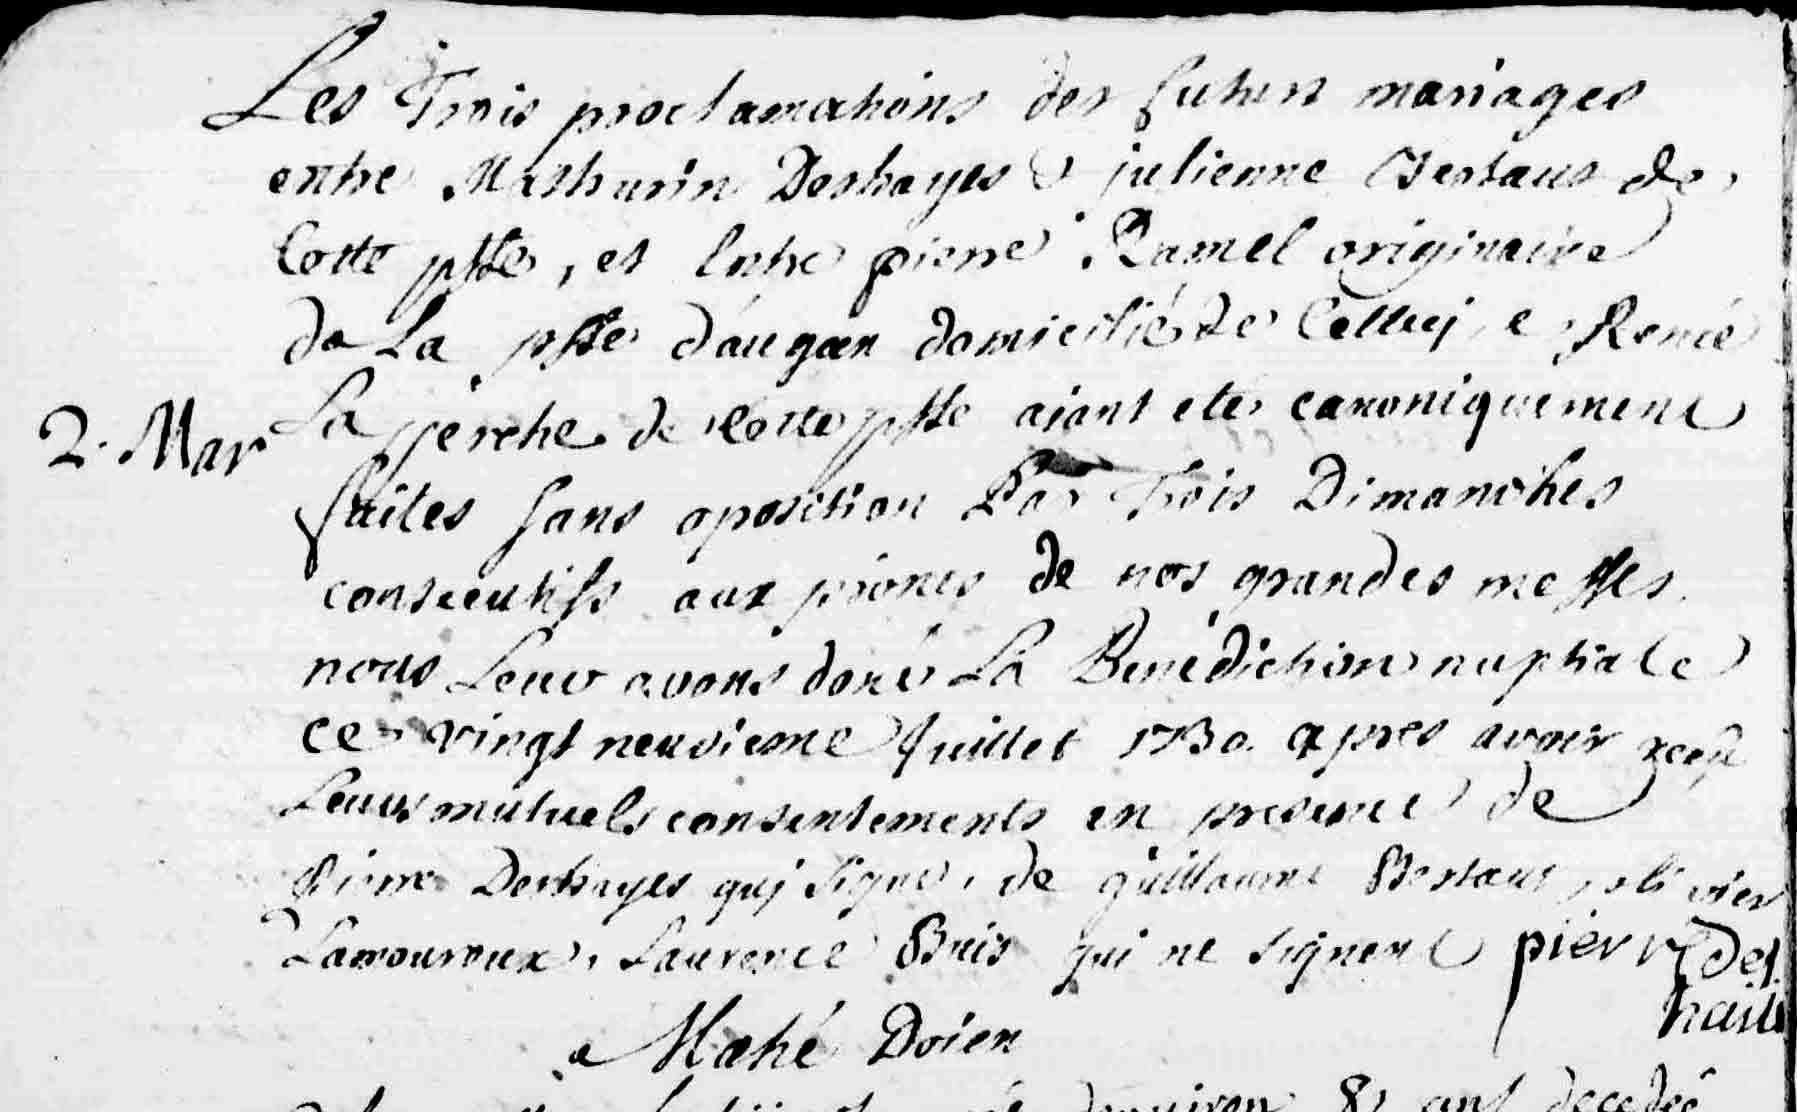 Les Trois proclamations des futurs mariages
entre Mathurin Deshayes & julienne Bertaus de
Cette psse, et Entre pierre Ramel originaire
de La psse d'augan domicilié de Celluy, e Renée
2. Mar La perche de Cette psse aiant eté canoniquement
faites sans oposition Par Trois Dimanches
consecutifs aux prones de nos grandes messes
nous Leur avons doné La Benediction nuptiale
ce vingt neuvieme Juillet 1730. apres avoir
Leurs mutuels consentements en presence de
Pierre Deshayes quj signe, de guillaume Bertaus, olivier
Lamoureux, Laurence Buis qui ne signent pierre des
haies
Mahé Doien
denviron ans decedée